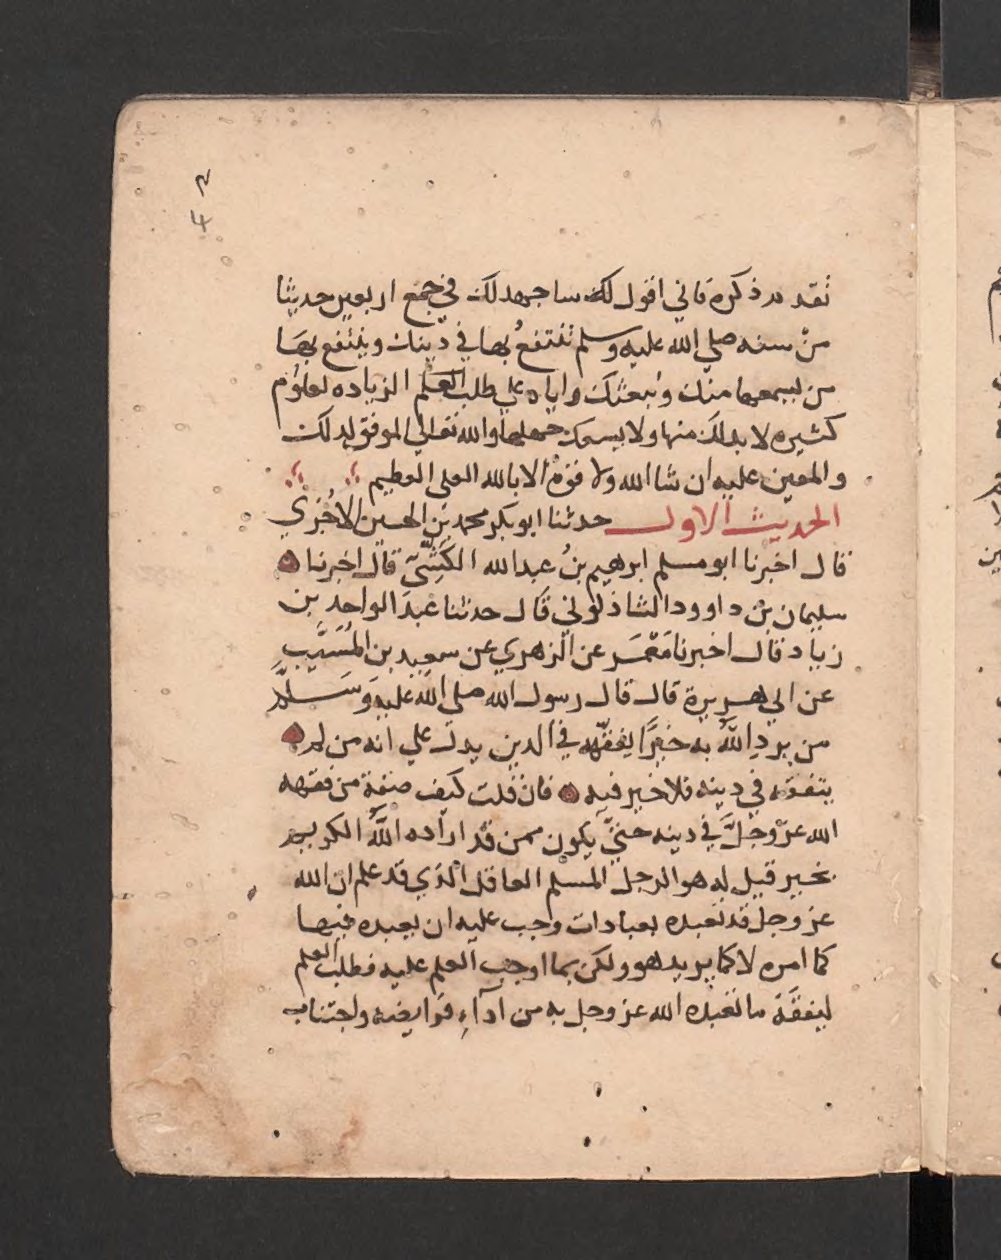 تقدم ذكره فاني اقول لك ساجهد لك في جمع اربعين حديثا
من سنه صلي الله عليه وسلم تنتفع بها في دينك وينتفع بها
من يسمعها منك وتبعثك واياه علي طلب العلم الزياده لعلوم
كثيره لا بد لك منها ولا يسعك جهلها والله تعالي الموفق لذلك
والمعين عليه ان شا الله ولا قوة الا بالله العلي العظيم
الحديث الاول حدثنا ابو بكر محمد بن الحسين الاجري
قال اخبرنا ابو مسلم ابرهيم بن عبد الله الكشي قال اخبرنا
سليمان بن داوود الشاذكوني قال حدثنا عبد الواحد بن
زياد قال اخبرنا مَعْمَر عن الزهري عن سعيد بن المُسَيَّبِ
عن ابي هريرة قال قال رسول الله صلي الله عليه وَسَلَّم
من يردِ اللهُ به خيرًا يفقّهه في الدين يدل علي انه من لم
يتفقه في دينه فلا خير فيه فان قلت كيف صفة من فقهه
الله عزّ وجلَّ في دينه حتيَّ يكون ممن قد اراده اللهُ الكريم
بخير قيل له هو الرجل المسلم العاقل الذي قد علم ان الله
عز وجل قد تعبده بعبادات وجب عليه ان يعبده فيها
كما امره لا كما يريد هو ولكن بما اوجب العلم عليه فطلب العلم
ليفقَهَ ما تعبده الله عز وجل به من ادآءِ فرايضه واجتناب